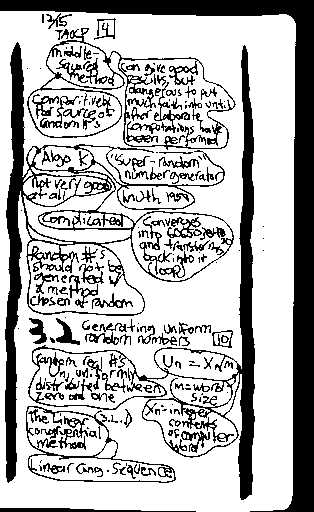 12/15
TAOCP [4]
middle-
square
method
can give good
results, but
dangerous to put
much faith into until
after elaborate
computations have
been performed
Comparitively
Poor source of
random #'s
Algo K
"super-random"
number generator
not very good
at all
Knuth 1959
Complicated
Converges
into 6065038420
and transforms
back into it
(loop)
Random #'s
should not be
generated w/
a method
chosen at random
3.2 Generating uniform
random numbers [10]
random real #'s
Un, uniformly
distributed between
zero and one
Un = Xn/m
m=word
size
Xn=integer
contents
of computer
word
The Linear (3.2.1)
congruential
method
Linear Cong. Sequence